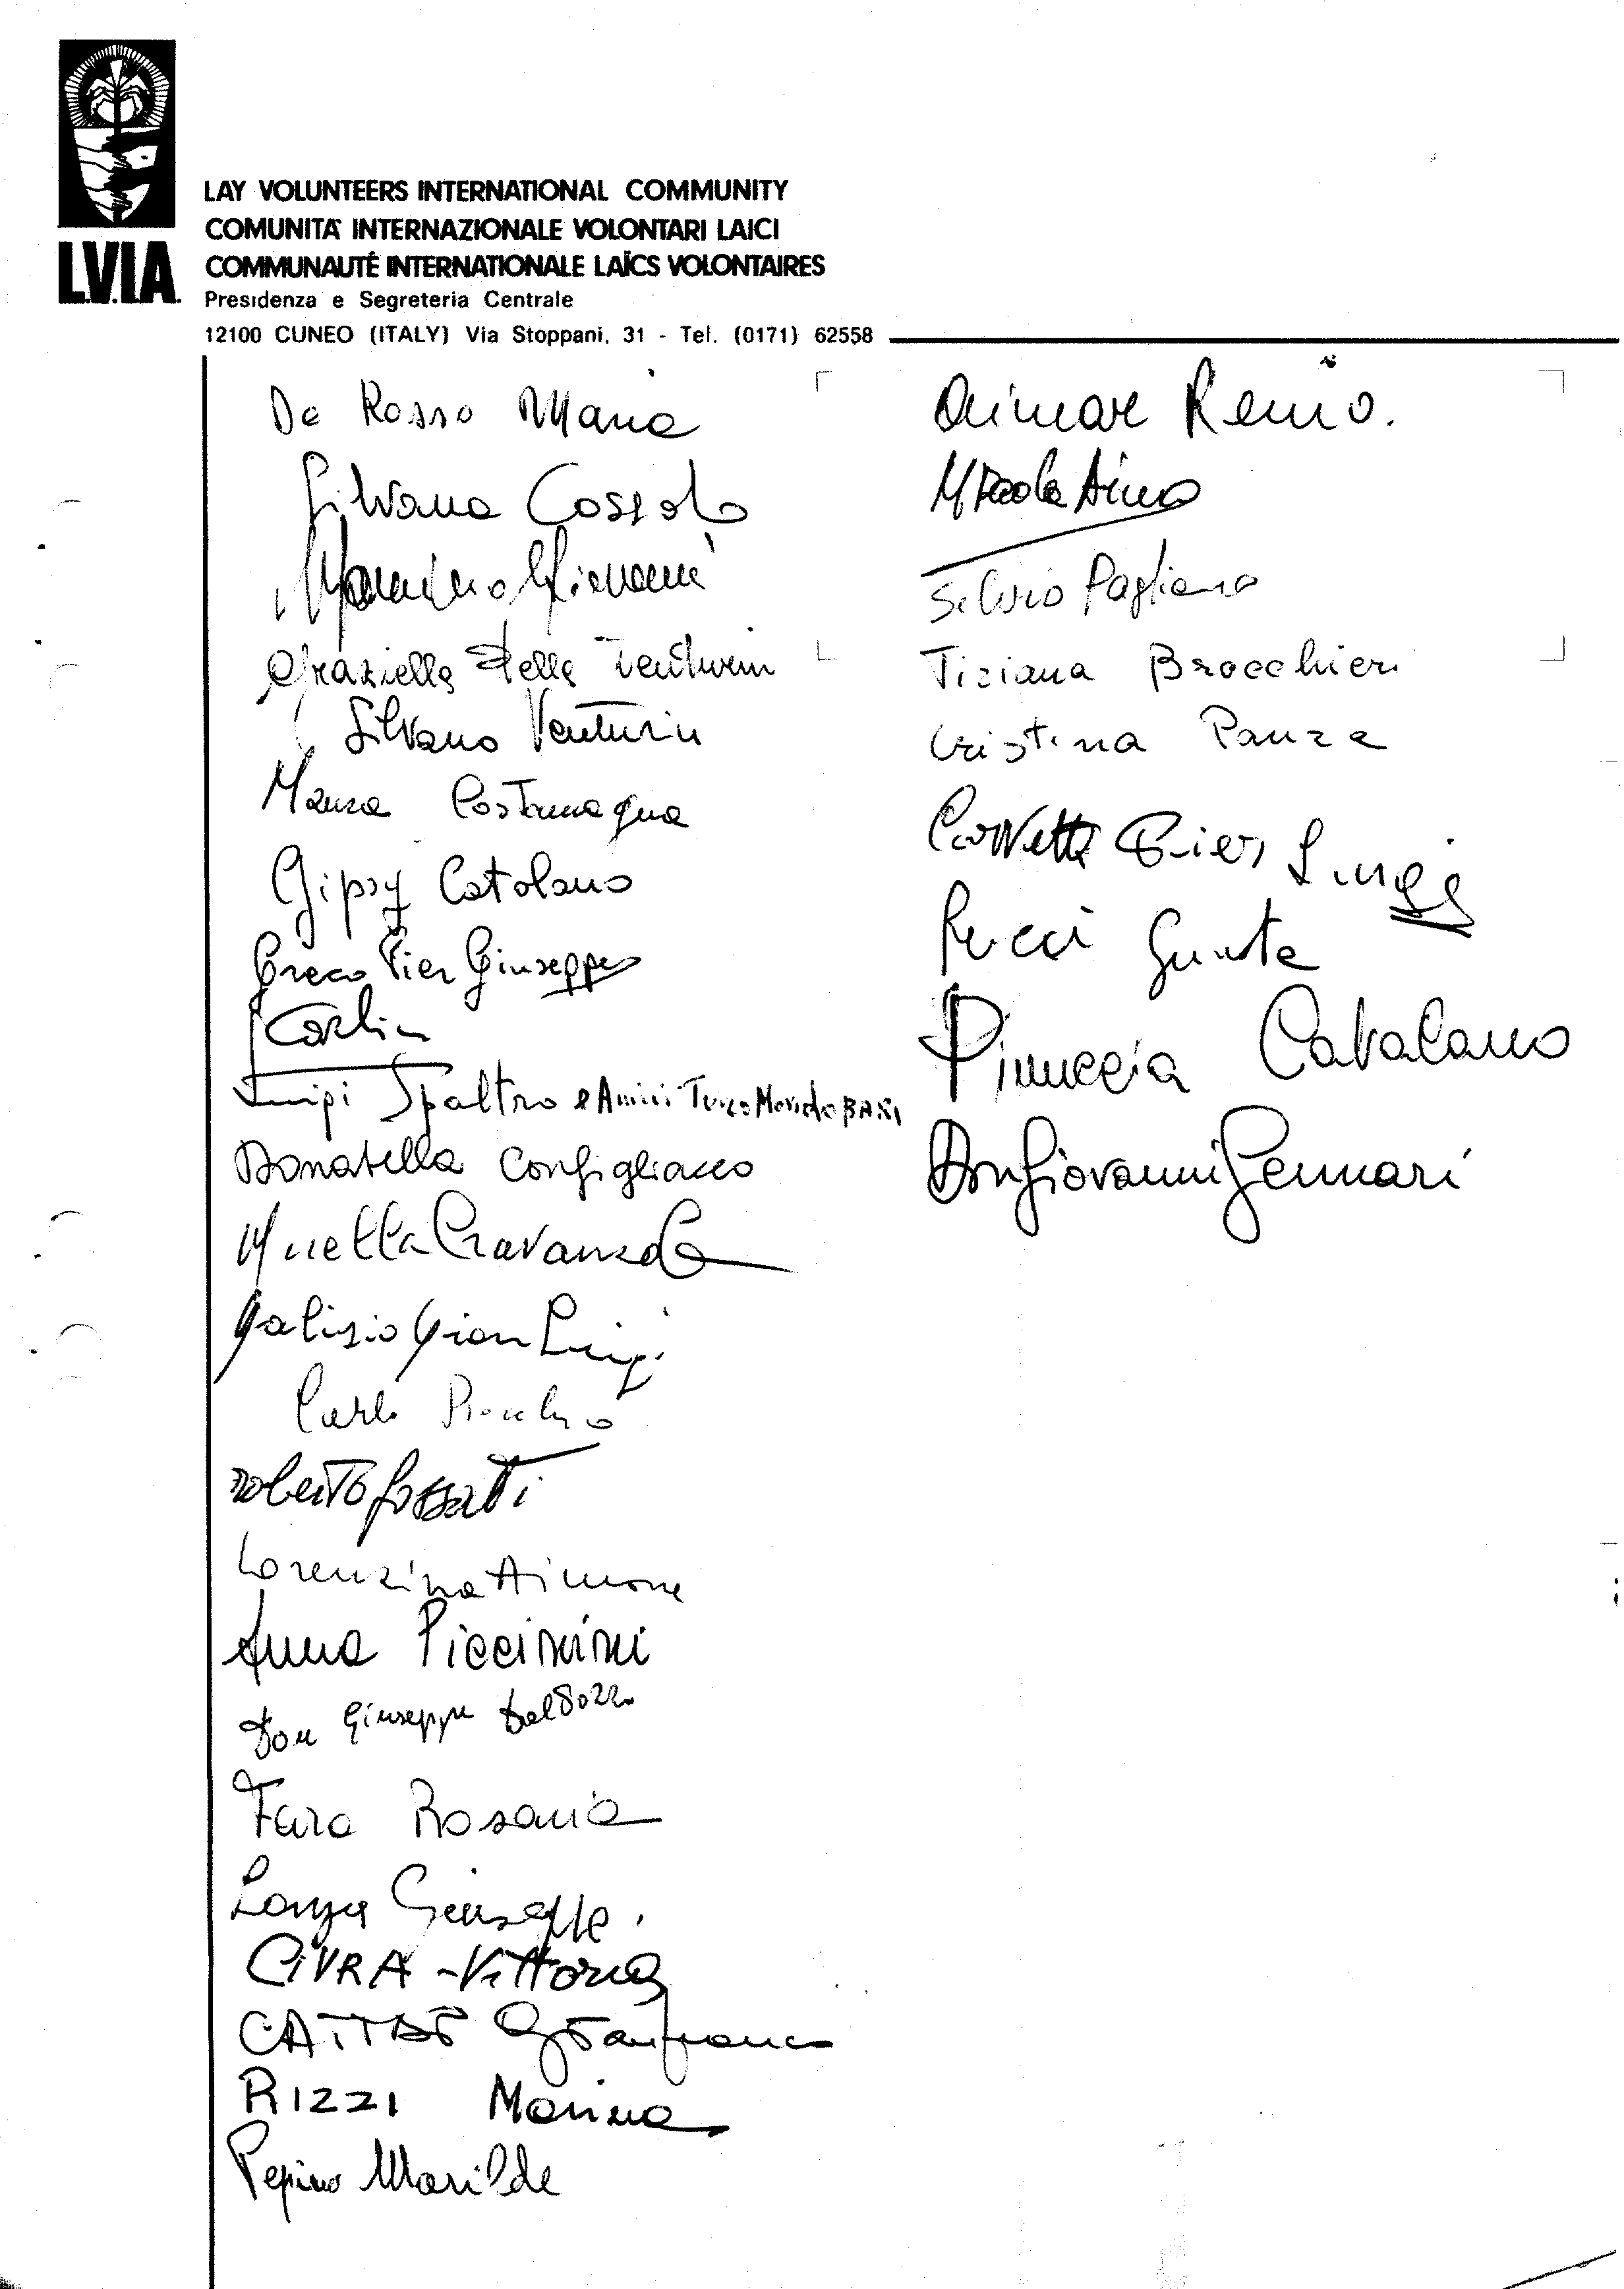 LAY VOLUNTEERS INTERNATIONAL COMMUNITY
COMUNITA' INTERNAZIONALE VOLONTARI LAICI
L.V.I.A.
COMMUNAUTÉ INTERNATIONALE LAÏCS VOLONTAIRES
Presidenza e Segreteria Centrale
12100 CUNEO (ITALY) Via Stoppani, 31 - Tel. (0171) 62558
De Rosso Maria
Silvana Cossolo
Giovanni
Graziella Della Venturin
Silvano Venturin
Maura Costamagna
Gipsy Catolano
Greco Pier Giuseppe
Carlin
Luigi Spaltro e Amici Terzo Mondo BARI
Donatella Configliacco
Mirella Cravanzola
Galizio Gian Luigi
Carlo
roberto fossati
Lorenzina Aimone
Anna Piccinini
Don Giuseppe
Fara Rosania
Lanza Giuseppe
CIVRA - Vittoria
Gianfranco
RIZZI Marina
Pepino Marilde
Aimar Remo.
M Paola Aimo
Silvio Pagliano
Tiziana Brocchieri
Cristina Panza
Corvetto Pier Luigi
Pucci Giunta
Pinuccia Catalano
Don Giovanni Gennari